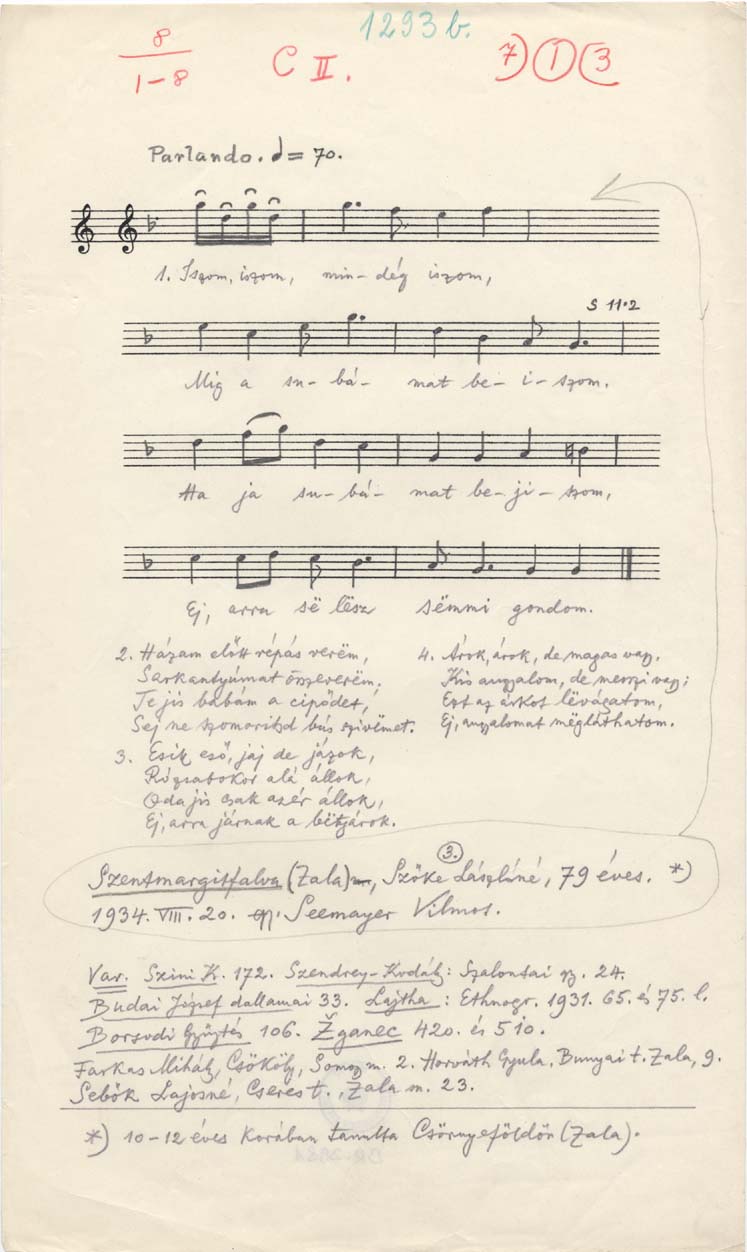 1293 b.
8
1–8
C II.
7) 1 (3
Parlando. = 70.
1. Iszom, iszom, min– dég iszom,
S 11·2
Mig a su– bá– mat be– i– szom.
Ha ja su– bá– mat be– ji– szom,
Ej, arra së lësz sëmmi gondom.
2. Házam előtt répás verëm,
Sarkantyúmat összeverëm.
Te jis babám a cipődet,
Sej ne szomoritsd bús szivëmet.
3. Esik eső, jaj de jázok,
Rózsabokor alá állok,
Oda jis csak azér állok,
Ej, arra járnak a bëtyárok.
4. Árok, árok, de magas vagy,
Kis angyalom, de messzi vagy;
Ezt az árkot lëvágatom,
Ej, angyalomat mëgláthatom.
3.
Szentmargitfalva (Zala), Szőke Lászlóné, 79 éves. *)
1934. VIII. 20. gy. Seemayer Vilmos.
Var. Szini K. 172. Szendrey–Kodály: Szalontai gy. 24.
Budai József dallamai 33. Lajtha: Ethnogr. 1931. 65. és 75. l.
Borsodi Gyűjtés 106. Žganec 420. és 510.
Farkas Mihály, Csököly, Somogy m. 2. Horváth Gyula, Bunyai t. Zala, 9.
Sebők Lajosné, Cseres t., Zala m. 23.
*) 10–12 éves korában tanulta Csörnyeföldön (Zala).